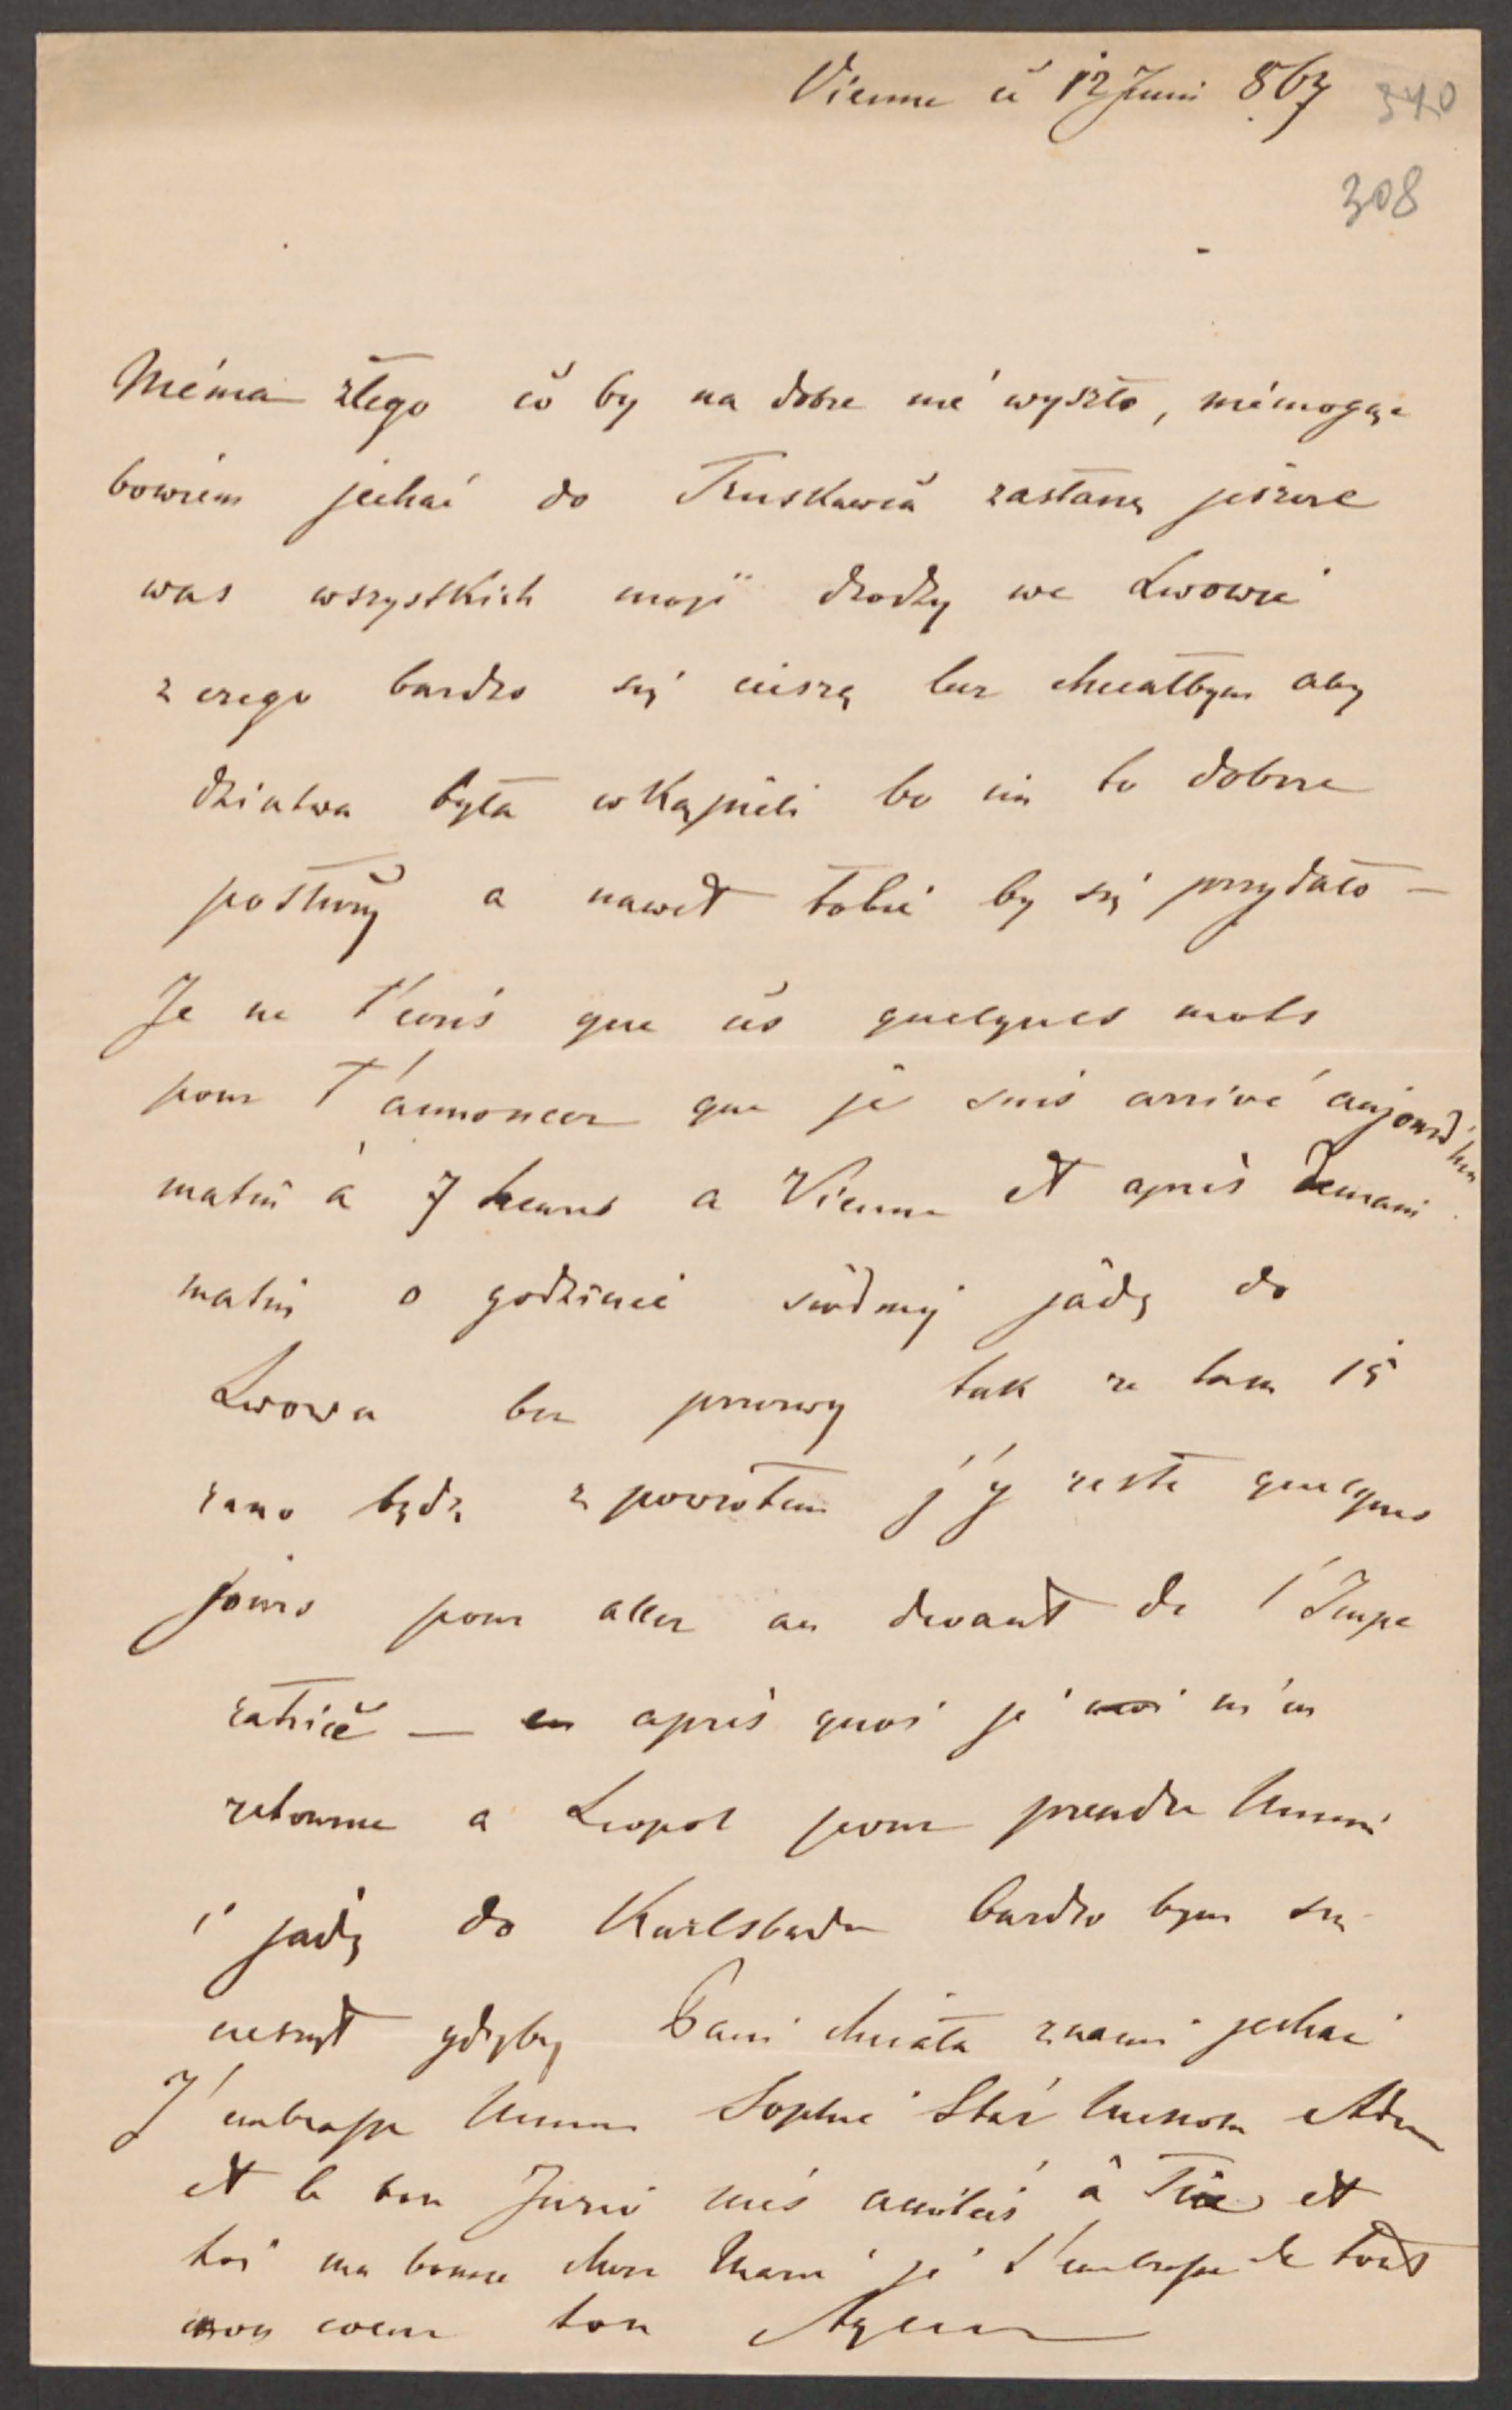 Vienne ce 12 Juni 867
340
308
Niéma złego co by na dobre nie wyszło, niemogąc
bowiem jechać do Truskawca zastanę jeszcze
was wszystkich moji drodzy we Lwowie
z czego bardzo się cieszę lecz chciałbym aby
dziatwa była w Kąpieli bo im to dobrze
posłuży a nawet tobie by się przydało —
Je ne t'ecris que ces quelques mots
pour T'annoncer que je suis arrivé aujourd'hui
matin à 7 heures a Vienne et après demain
matin o godzinie siódmej jadę do
Lwowa bez przerwy tak ze tam 15
rano będę z powrotem j'y reste quelques
jours pour aller au devant de l'Impe
ratrice — apres quoi je m'en
retourne a Leopol pour prendre
i jadę do Karlsbadu bardzo bym się
cieszył gdyby Pani chciała z nami jechać
J'embrasse Sophie
et le bon Juzio mes amitiés à et
toi ma bonne chere je t'embrasse de tout
mon coeur ton